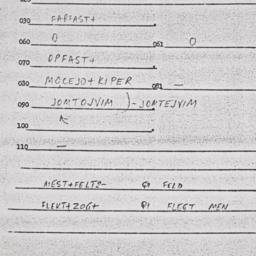 030 FARFAST+
060 0 061 0
070 OPFAST+
080 MOLEJO+KIPER 081 —
090 JOMTOJVIM ) - JOMTEJVIM
100 K
110 —
MEST+FELTS- FELD
FLEKT+ZOG+ FLEGT MEN